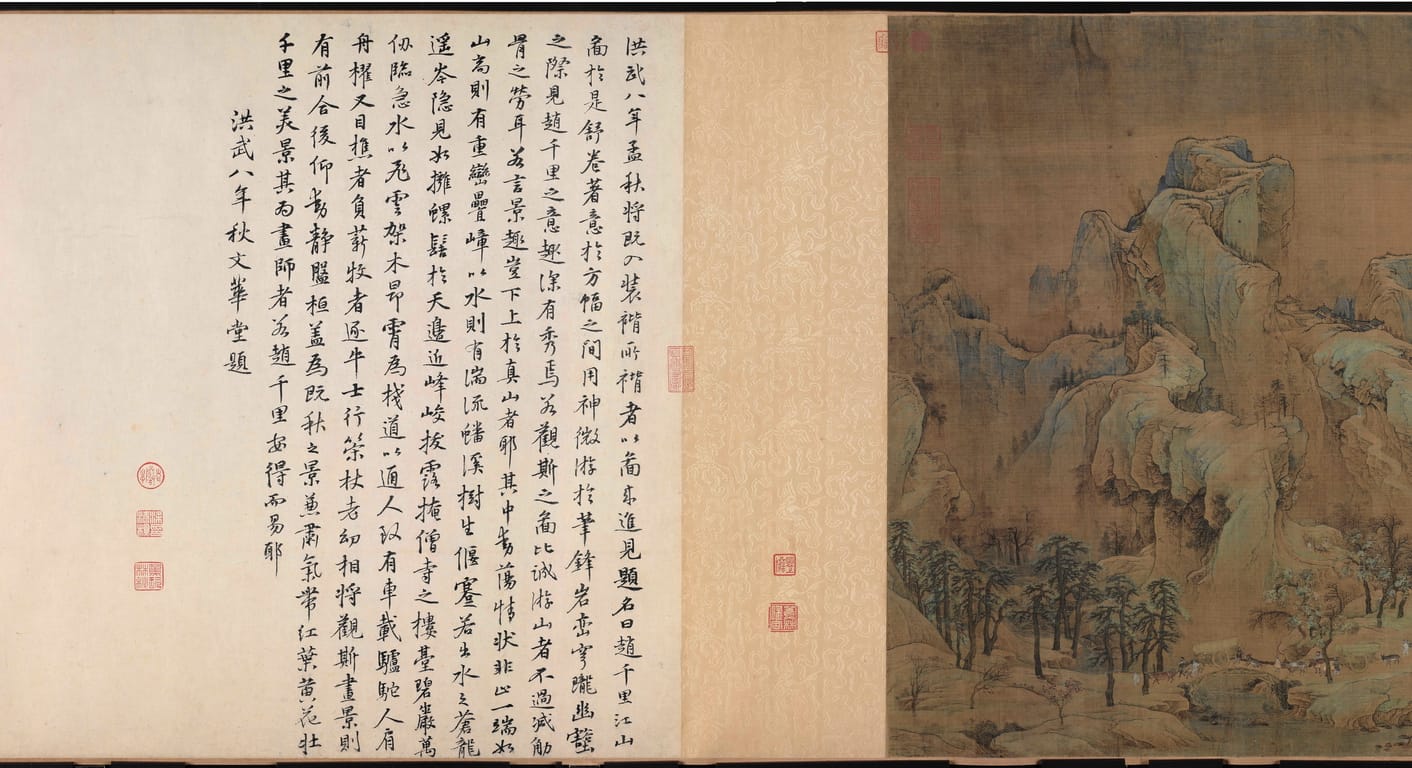 洪武八年孟秋將既入裝褙所褙者以啚來進見題名曰趙千里江山
啚於是舒卷著意於方幅之間用神微游於筆鋒岩巒穹矓幽壑
之際見趙千里之意趣深有秀焉若觀斯之啚比誠游山者不過减觔
骨之勞耳若言景趣豈下上於真山者耶其中動蕩情狀非止一端如
山高則有重巒疊嶂以水則有湍流蟠溪樹生偃蹇若出水之蒼龍
遥岑隐見如擁螺髻於天邊近峰峻拔露掩僧寺之樓臺碧巖萬
仭臨急水以飛雲架木昂霄為棧道以通人致有車載驢馳人肩
舟櫂又目樵者負薪牧者逐牛士行策杖老幼相將觀斯畫景則
有前合後仰動靜盤桓盖為既秋之景兼肅氣帶紅葉黄花壯
千里之美景其為畫師者若趙千里安得而易耶
洪武八年秋文華堂題